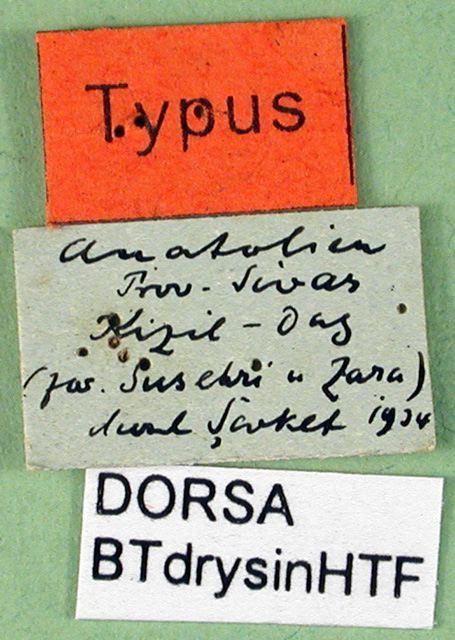 Typus
Anatolien
Prov. Sivas
Kizil-Dag
(zw. Susehri u Zara)
durch Şevket 1934
DORSA
BTdrysinHTF